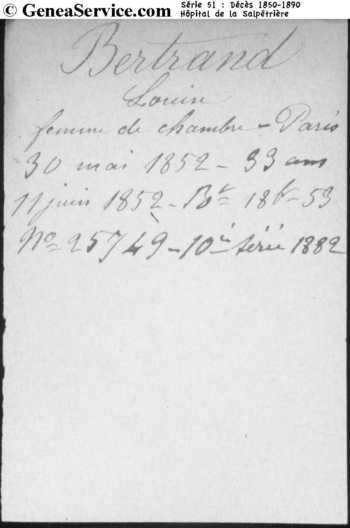 © GeneaService.com
Série 51 : Décès 1850-1890
Hôpital de la Salpêtrière
Bertrand
Louise
femme de chambre - Paris
30 mai 1852 - 33 ans
11 juin 1852 - Bt = 18 - 53
No = 25749 - 10e série 1882